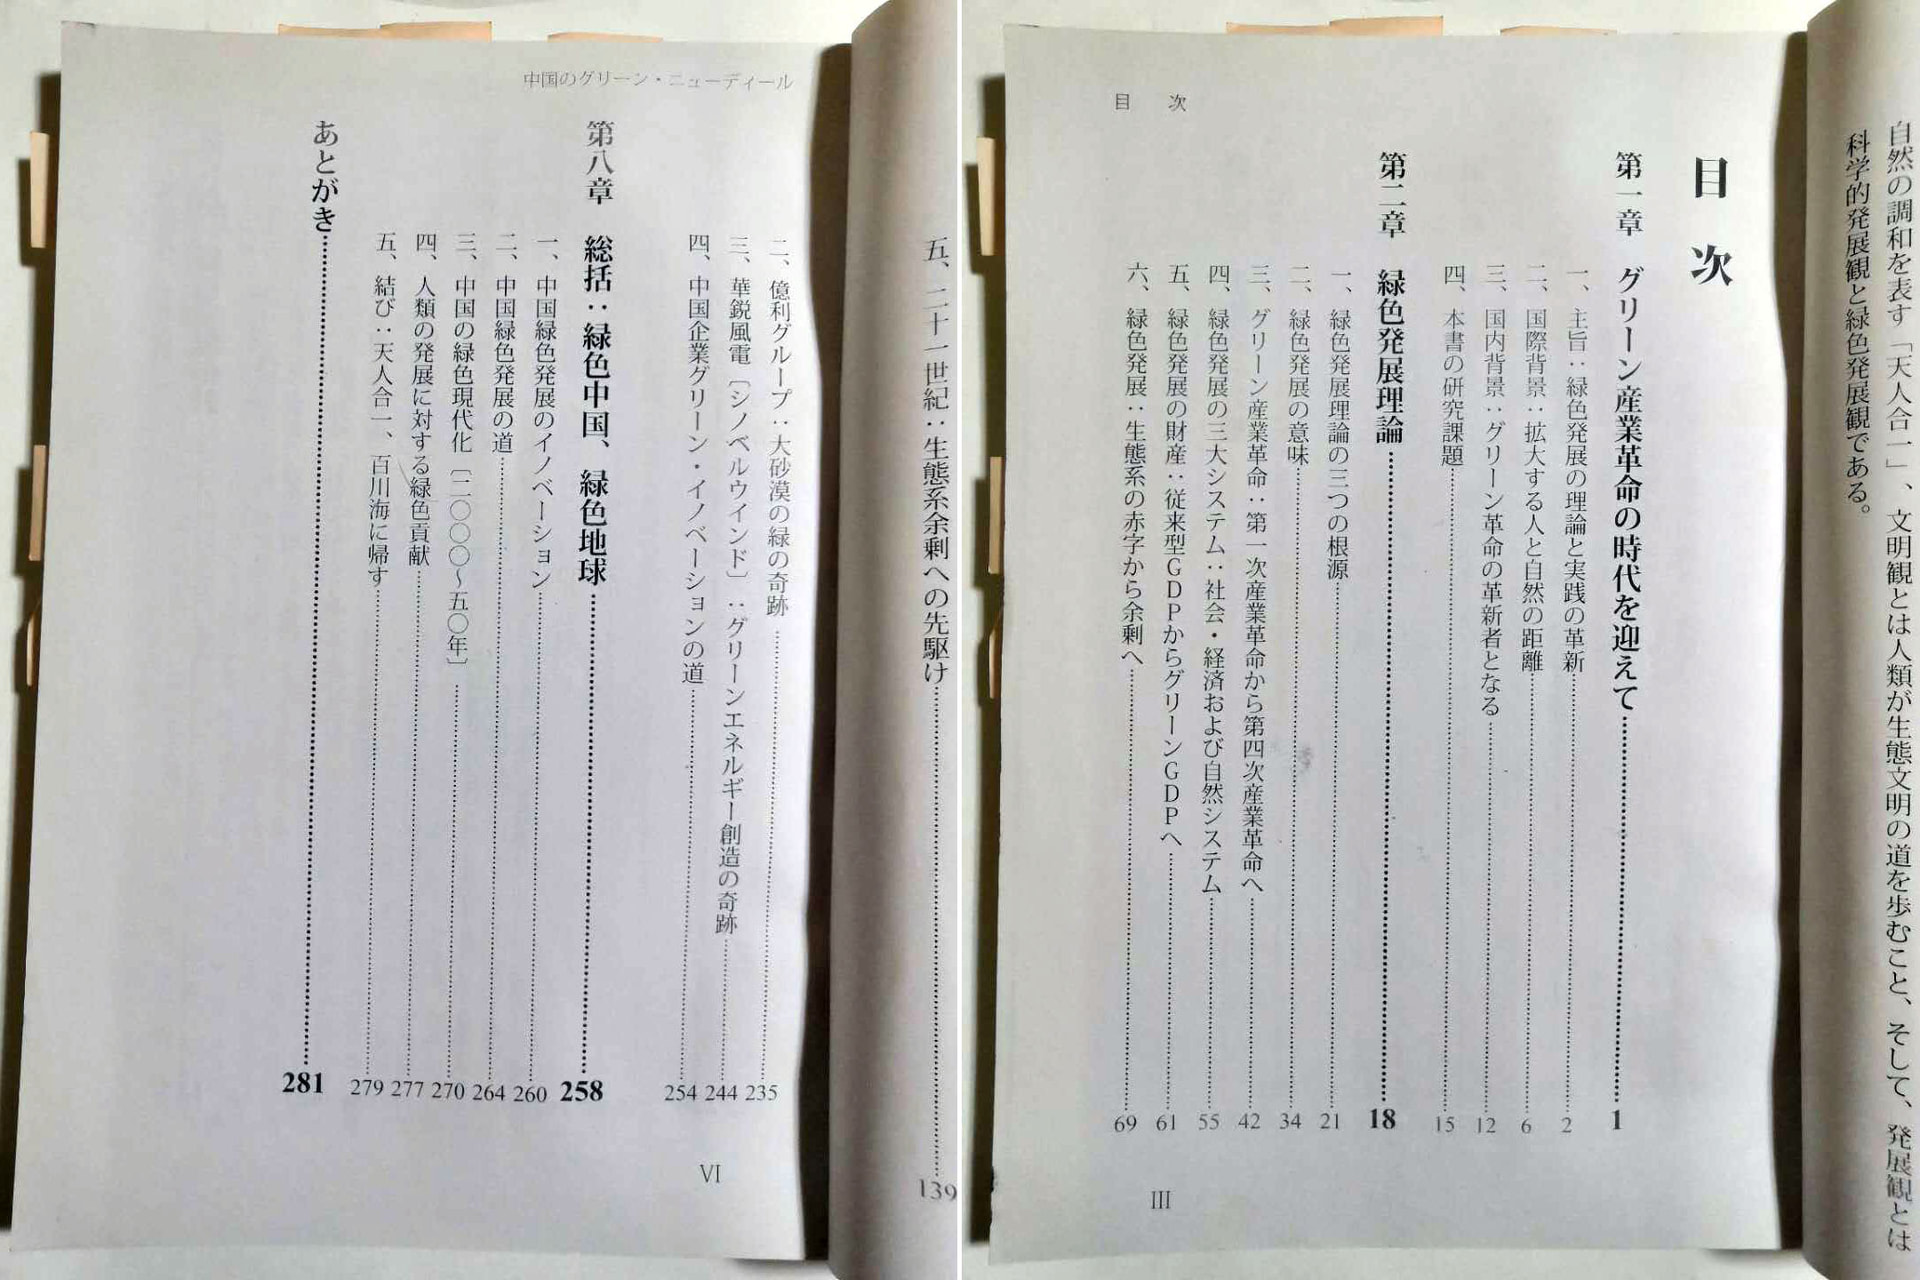 中国のグリーン・ニューディール
五、二十一世紀：生態系余剰への先駆け 139
二、億利グループ：大砂漠の緑の奇跡 235
三、華鋭風電〔シノベルウインド〕：グリーンエネルギー創造の奇跡 244
四、中国企業グリーン・イノベーションの道 254
第八章　総括：緑色中国、緑色地球 258
一、中国緑色発展のイノベーション 260
二、中国緑色発展の道 264
三、中国の緑色現代化〔二〇〇〇〜五〇年〕 270
四、人類の発展に対する緑色貢献 277
五、結び：天人合一、百川海に帰す 279
あとがき 281
VI
自然の調和を表す「天人合一」、文明観とは人類が生態文明の道を歩むこと、そして、発展観とは
科学的発展観と緑色発展観である。
目　次
目次
第一章　グリーン産業革命の時代を迎えて 1
一、主旨：緑色発展の理論と実践の革新 2
二、国際背景：拡大する人と自然の距離 6
三、国内背景：グリーン革命の革新者となる 12
四、本書の研究課題 15
第二章　緑色発展理論 18
一、緑色発展理論の三つの根源 21
二、緑色発展の意味 34
三、グリーン産業革命：第一次産業革命から第四次産業革命へ 42
四、緑色発展の三大システム：社会・経済および自然システム 55
五、緑色発展の財産：従来型GDPからグリーンGDPへ 61
六、緑色発展：生態系の赤字から余剰へ 69
III